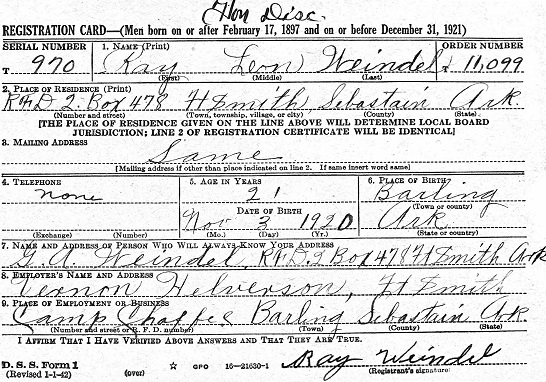 Hon Disc.
REGISTRATION CARD—(Men born on or after February 17, 1897 and on or before December 31, 1921)
SERIAL NUMBER 1. NAME (Print) ORDER NUMBER
T 970 Ray Leon Weindel T 11,099
(First) (Middle) (Last)
2. PLACE OF RESIDENCE (Print)
RFD 2. Box 478 Ft Smith, Sebastain Ark.
(Number and street) (Town, township, village, or city) (County) (State)
[THE PLACE OF RESIDENCE GIVEN ON THE LINE ABOVE WILL DETERMINE LOCAL BOARD
JURISDICTION; LINE 2 OF REGISTRATION CERTIFICATE WILL BE IDENTICAL]
3. MAILING ADDRESS
Same
[Mailing address if other than place indicated on line 2. If same insert word same]
4. TELEPHONE 5. AGE IN YEARS 6. PLACE OF BIRTH
none 21 Barling
DATE OF BIRTH (Town or county)
Nov 3 1920 Ark
(Exchange) (Number) (Mo.) (Day) (Yr.) (State or country)
7. NAME AND ADDRESS OF PERSON WHO WILL ALWAYS KNOW YOUR ADDRESS
G. A. Weindel, RFD. 2 Box 478 Ft Smith Ark
8. EMPLOYER'S NAME AND ADDRESS
Vernon Helverson, Ft Smith
9. PLACE OF EMPLOYMENT OR BUSINESS
Camp Chaffee Barling Sebastain Ark
(Number and street or R. F. D. number) (Town) (County) (State)
I AFFIRM THAT I HAVE VERIFIED ABOVE ANSWERS AND THAT THEY ARE TRUE.
D. S. S. Form 1
(Revised 1-1-42) (over) ☆ GPO 16—21630-1 Ray Weindel
(Registrant's signature)